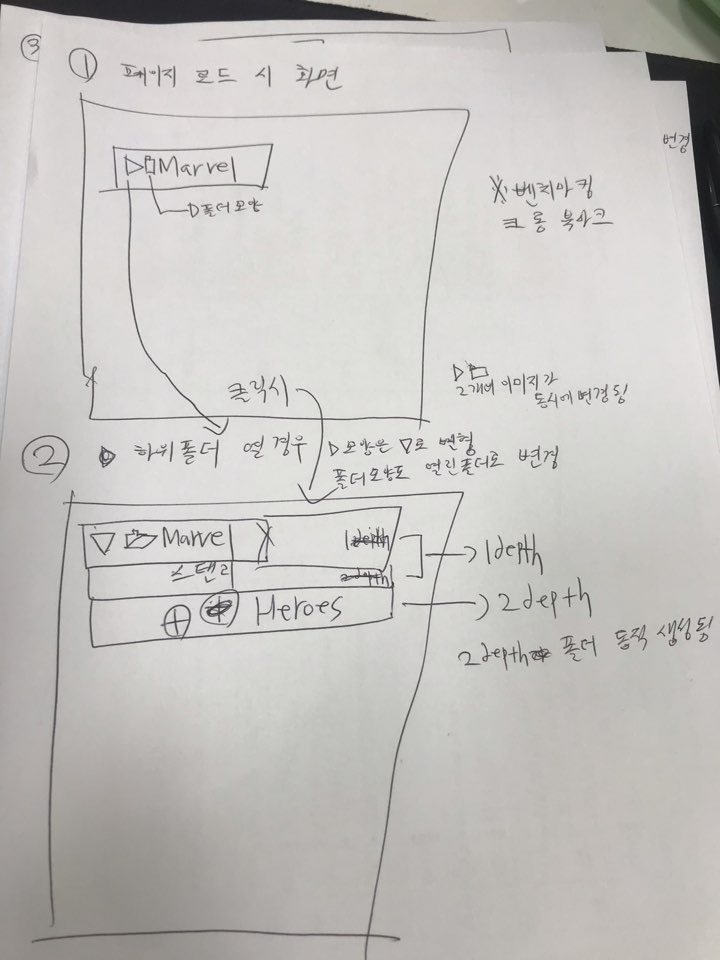 ③
① 페이지 로드 시 화면
변경
▷ Marvel
폴더모양
※ 벤치마킹
크롬 북마크
클릭시
▷
2개의 이미지가
동시에 변경됨
② 하위폴더 열 경우
▷모양은 ▽로 변형
폴더모양도 열린폴더로 변경
▽ Marvel
1depth
스탠리
2depth
+ Heroes
1depth
2depth
2depth 폴더 동적 생성됨